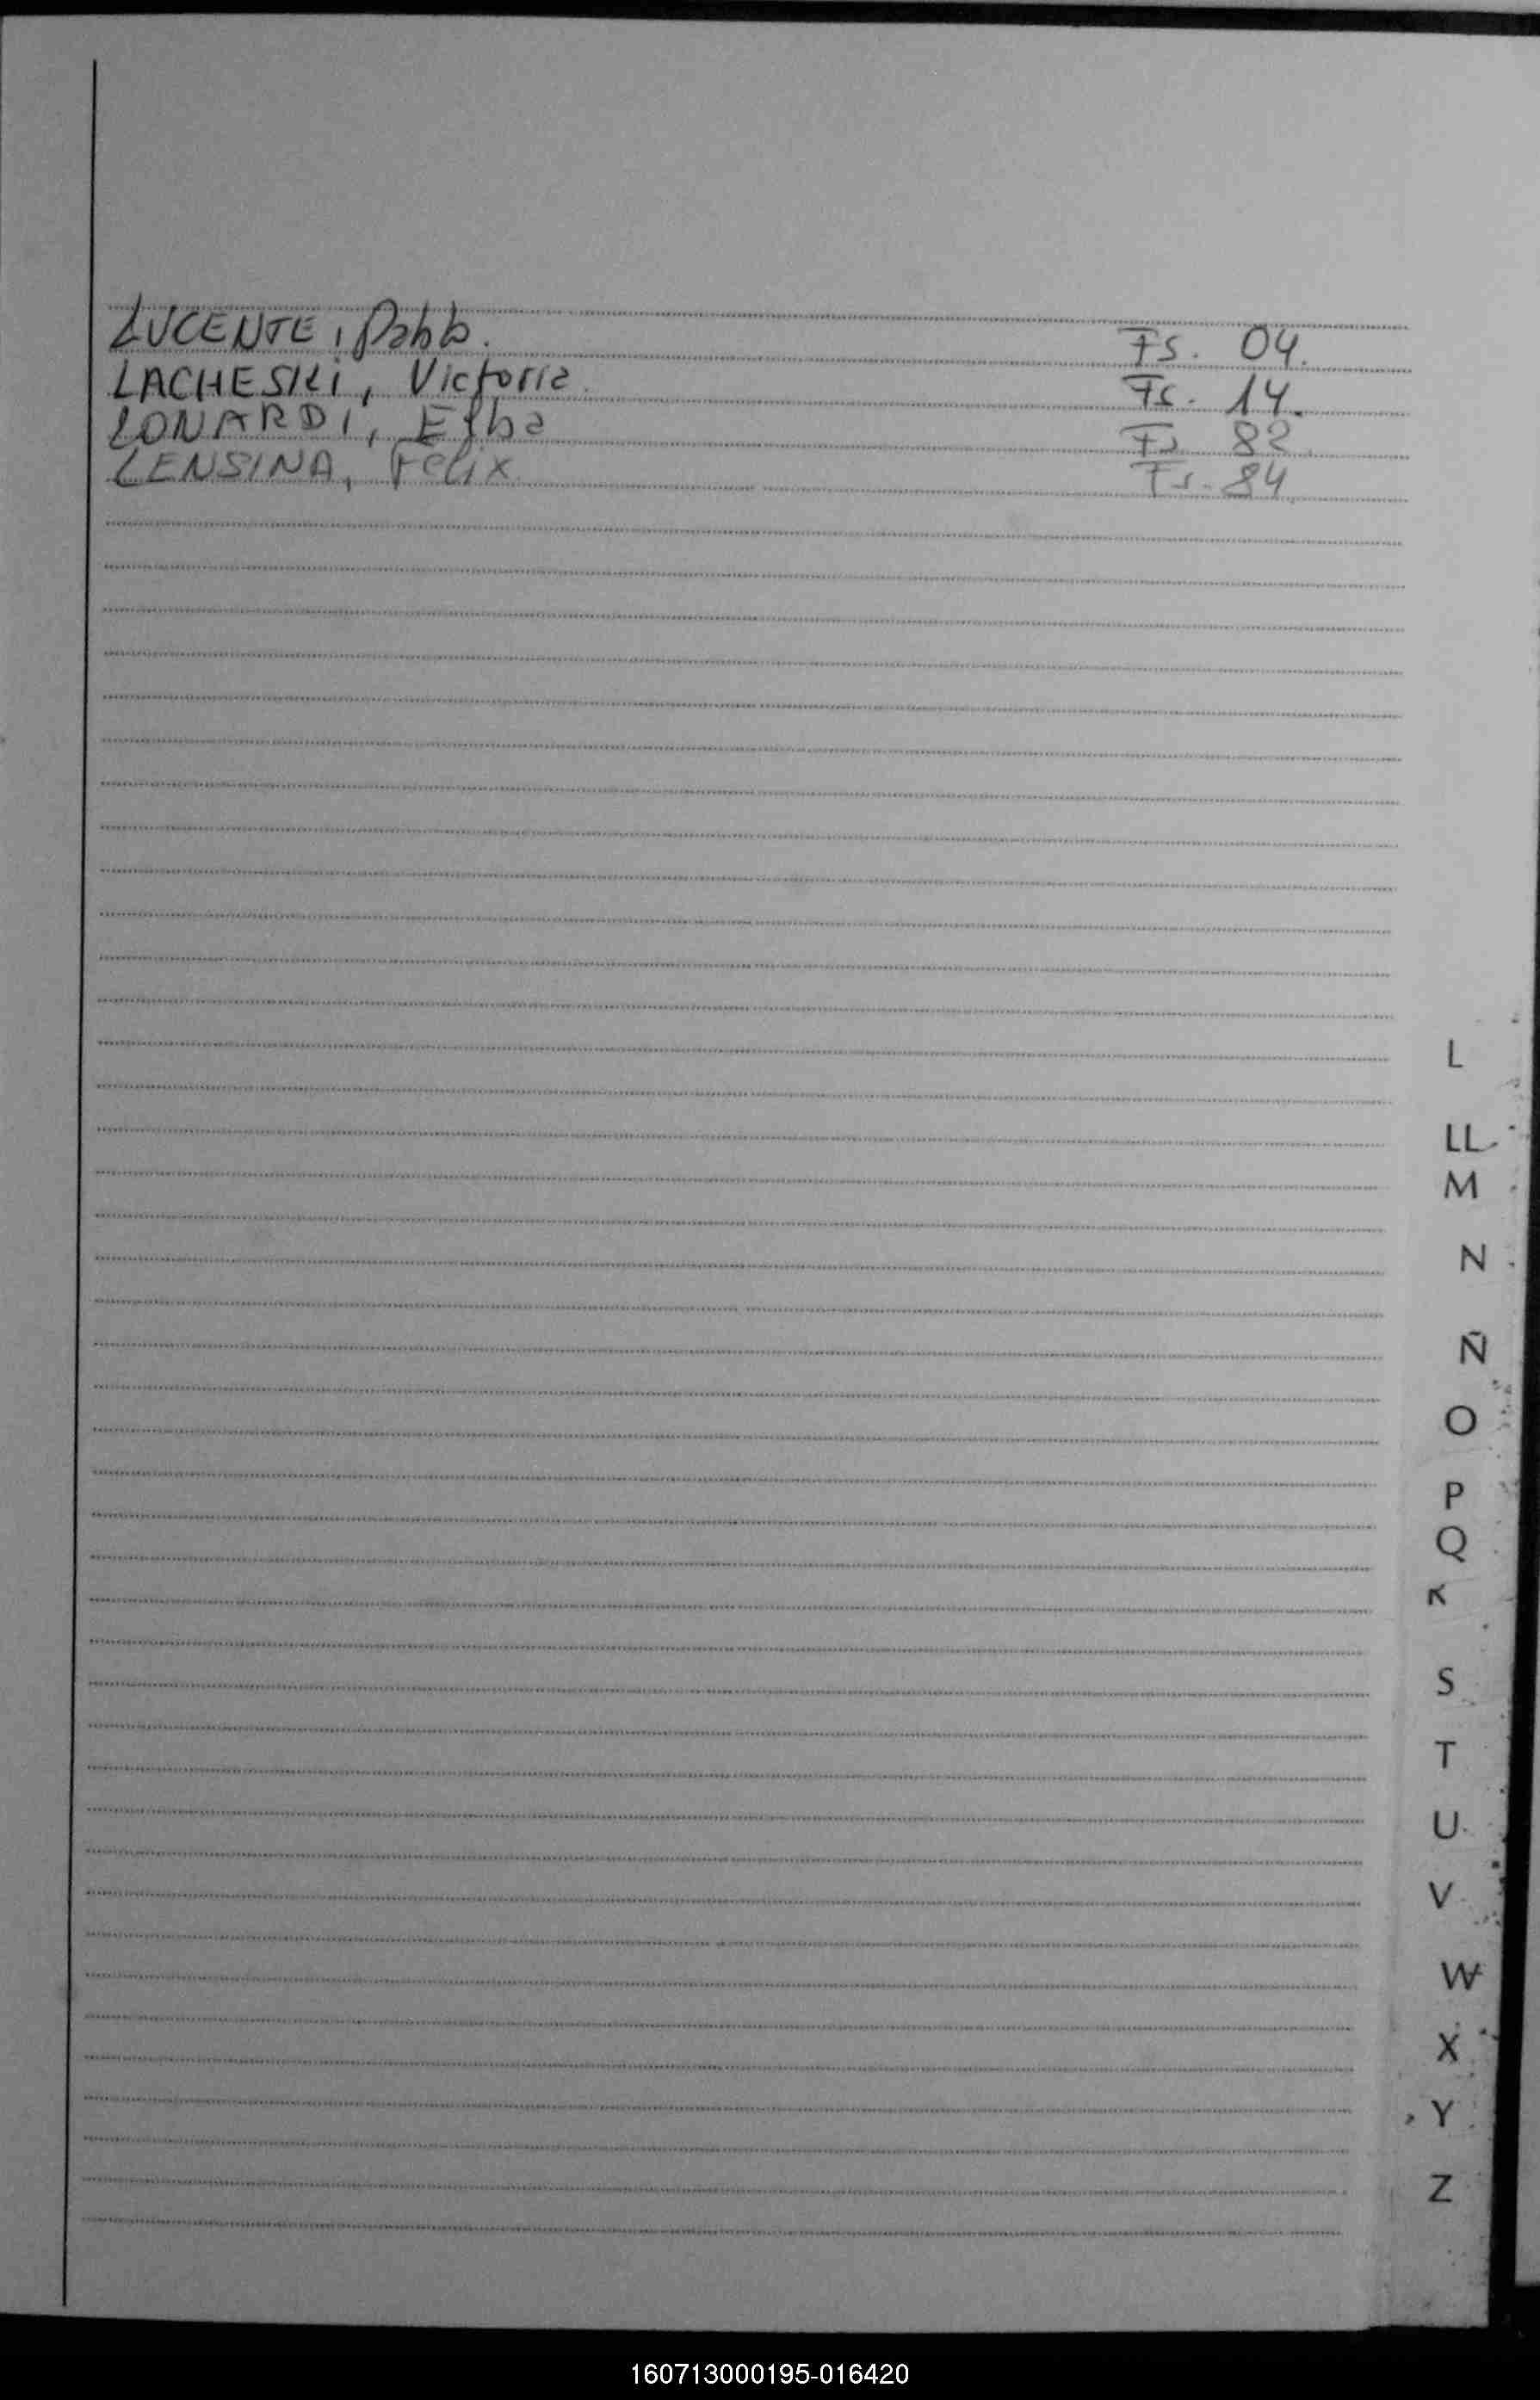 LUCENTE, Pablo. Fs. 04.
LACHESKi, Victoria. Fs. 14.
LONARDI, Elba Fs. 82.
LENSINA, Felix. Fs. 84
L
LL
M
N
Ñ
O
P
Q
R
S
T
U
V
W
X
Y
Z
160713000195-016420